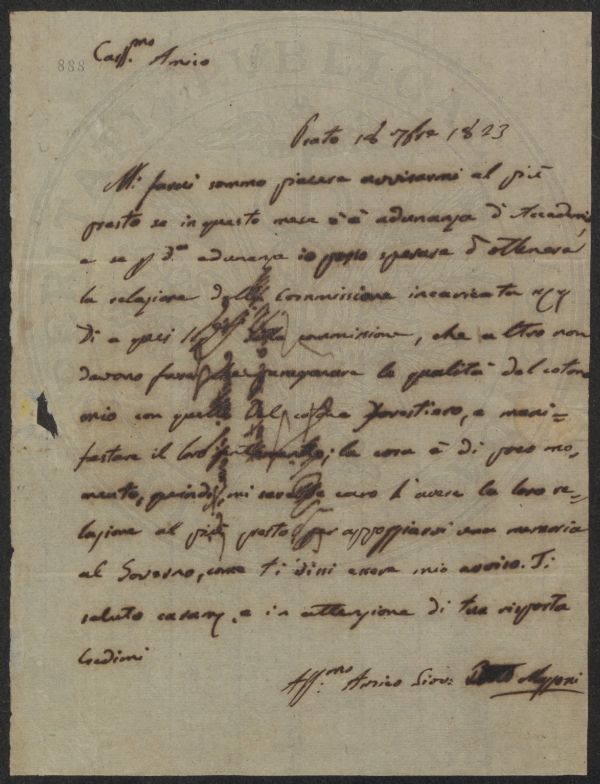 888
Cariss.mo Amico
Prato 18 7bre 1823
Mi farai sommo piacere avvisarmi al più
presto se in questo mese c'è adunanza d'Accademia,
e se p d.a adunanza io posso sperare d'ottenere
la relazione della Commissione incaricata
Di a quei commissione, che altro non
devono fare che paragonare le qualità del cotone
mio con quelle del cotone forestiero, e mani=
festare il loro sentimento; la cosa è di poco mo-
mento, quindi mi sarebbe caro l'avere la loro re-
lazione al più presto per appoggiarvi una memoria
al Governo, come ti dissi essere mio avviso. Ti
saluto caram. e in attenzione di tua risposta
Credimi
Aff.mo Amico Giov: Mazzoni